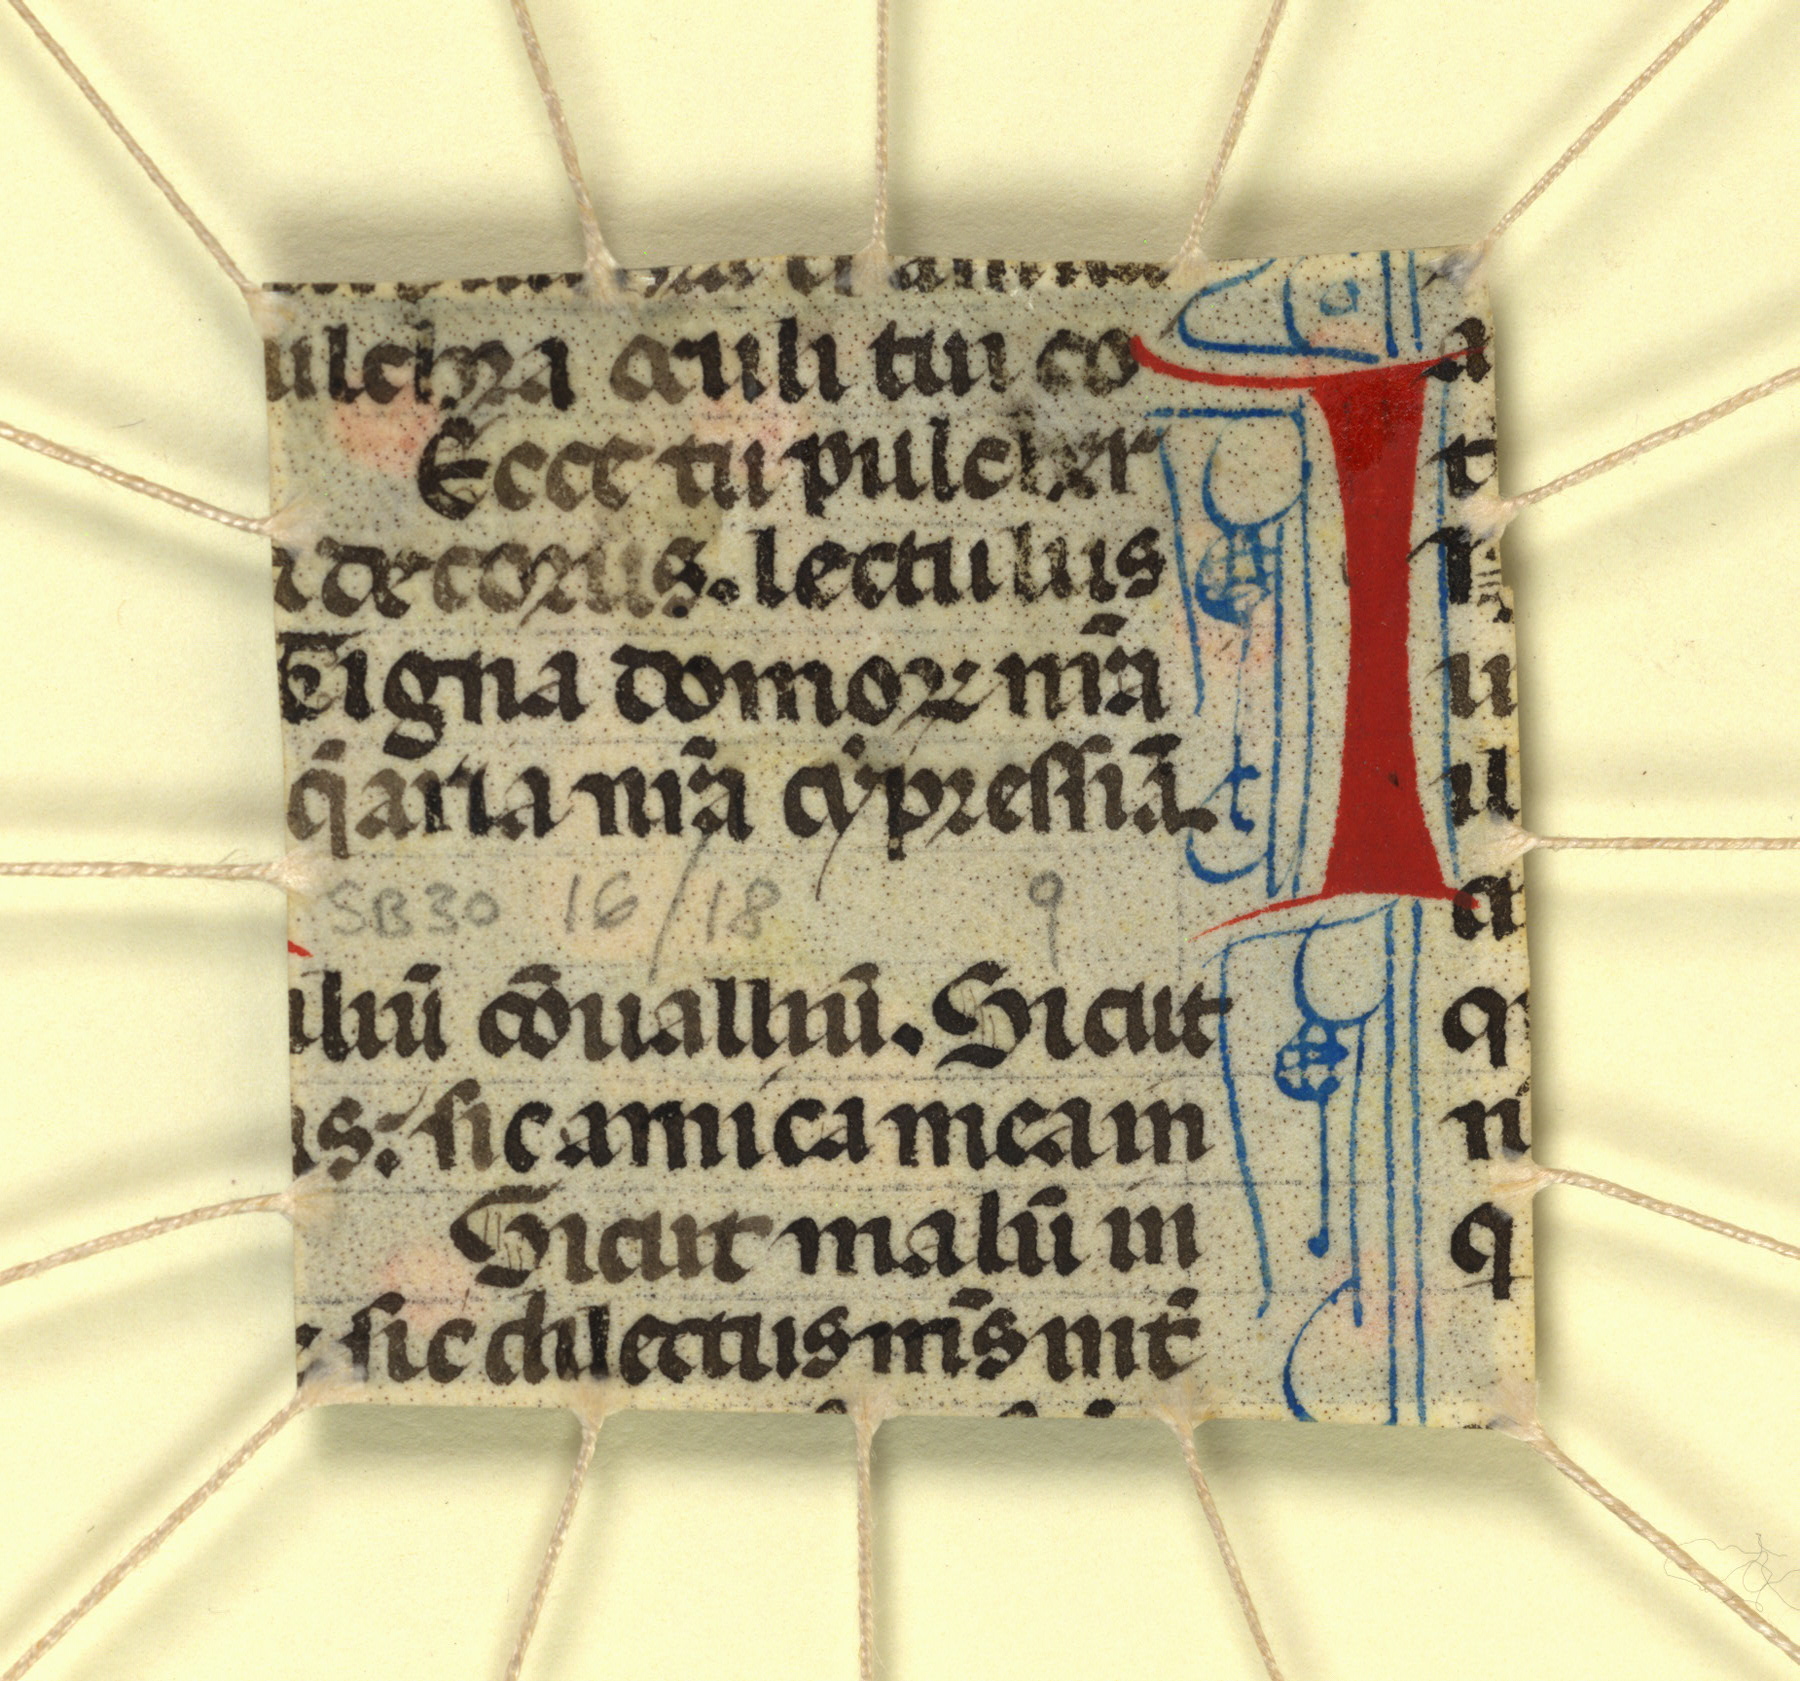 ulchra oculi tui co
Ecce tu pulcher
decorus. lectulus
Tigna domoꝝ nr̄a
q̄aria nr̄a cypressiā.
SB30 16/18 9
iliū cōuallīū. Sicut
as: sic amica mea in
Sicut malū in
sic dilectus ms̄ int̄
a
t
u
ul
a
q
n
q